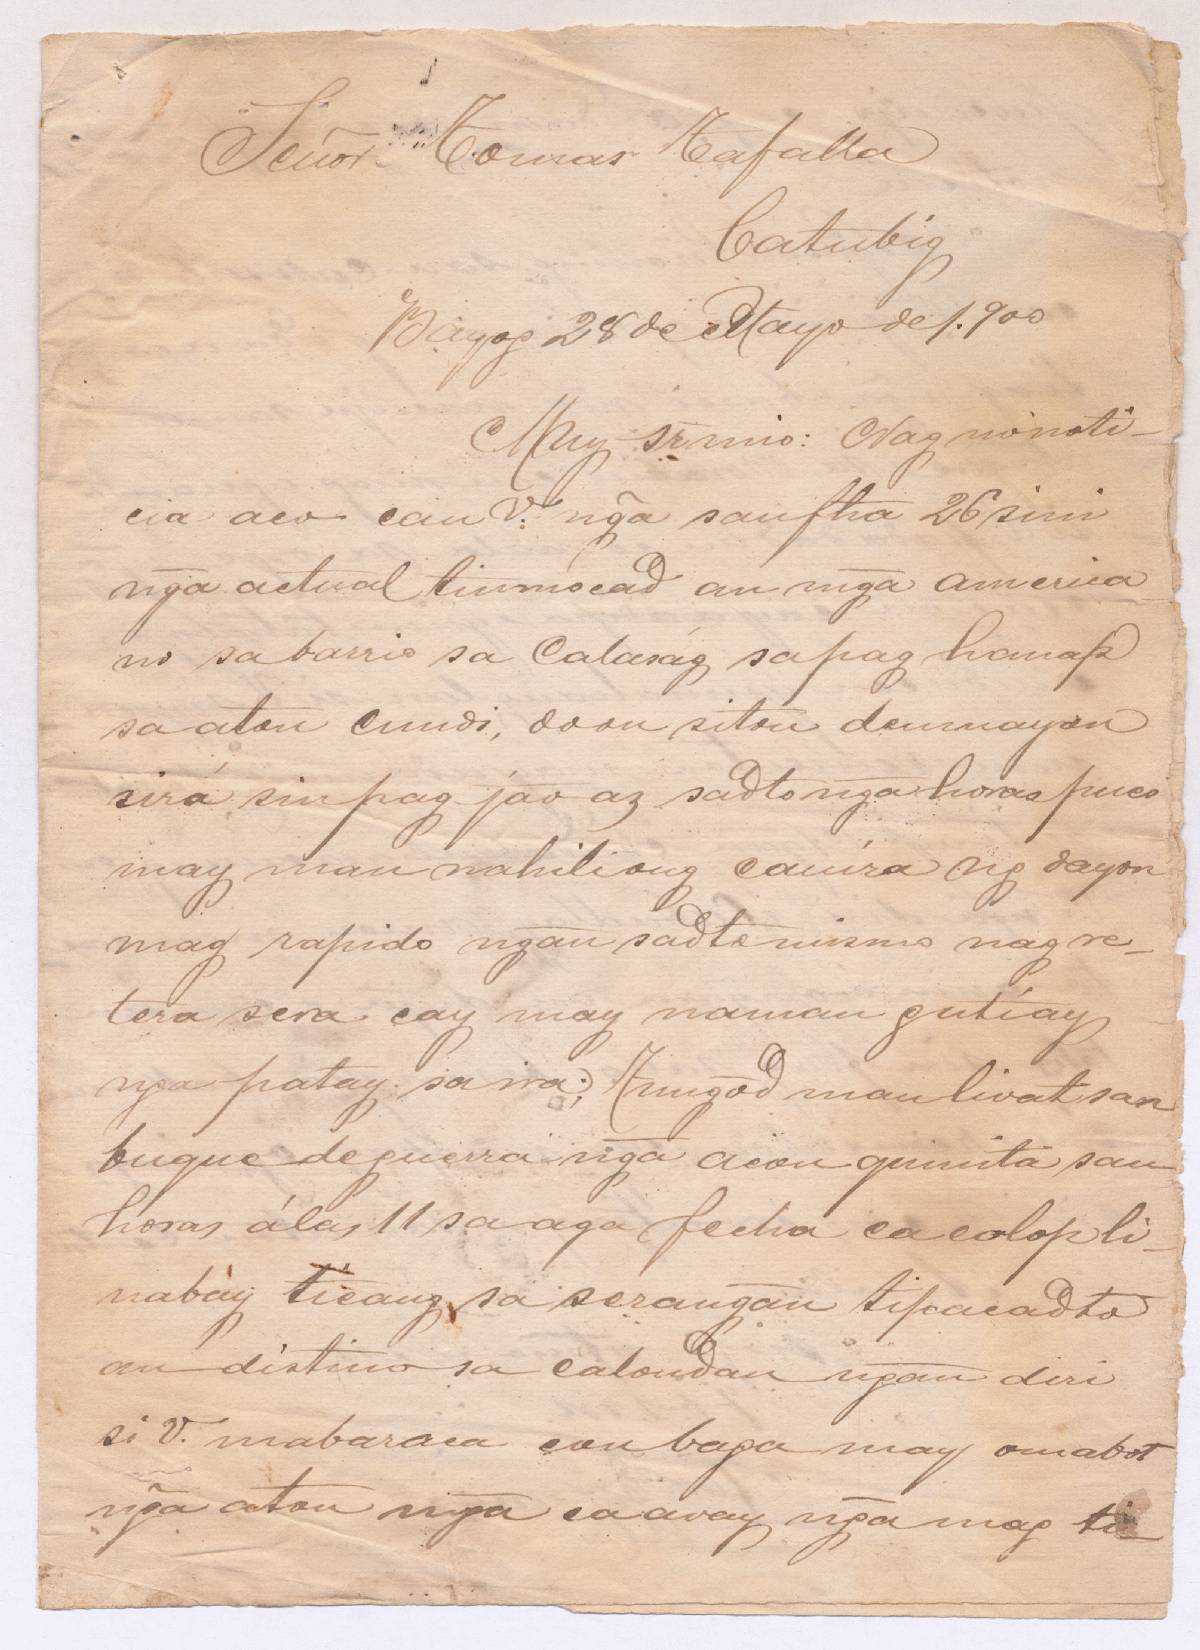 Señor. Tomas Tafalla
Catubig
Bayog 28 de Mayo de 1.900
Muy Sr. mio: Nag nonoti-
cia aco can V. ngã san fha 26 sini
nga actual tinmocad an mga america
no sa barrio sa Calaság sa pag hanap
sa aton cundi, doon siton dumayon
sirá sin pag jao az sadto nga horas pues
may man nahiliong canira ng dayon
mag rapido ngan sadto mismo nag re-
tera sera cay may naman gutiay
nga patay sa ira; Tungod man livat san
buque de guerra nga acon quinita san
horas álas 11 sa aga fecha ca colop li-
nabáy ticang sa serangan tipacadto
an distino sa calondan ngan diri
si V. mabaraca con baga may omabot
ngã aton nga ca away nga mag ti